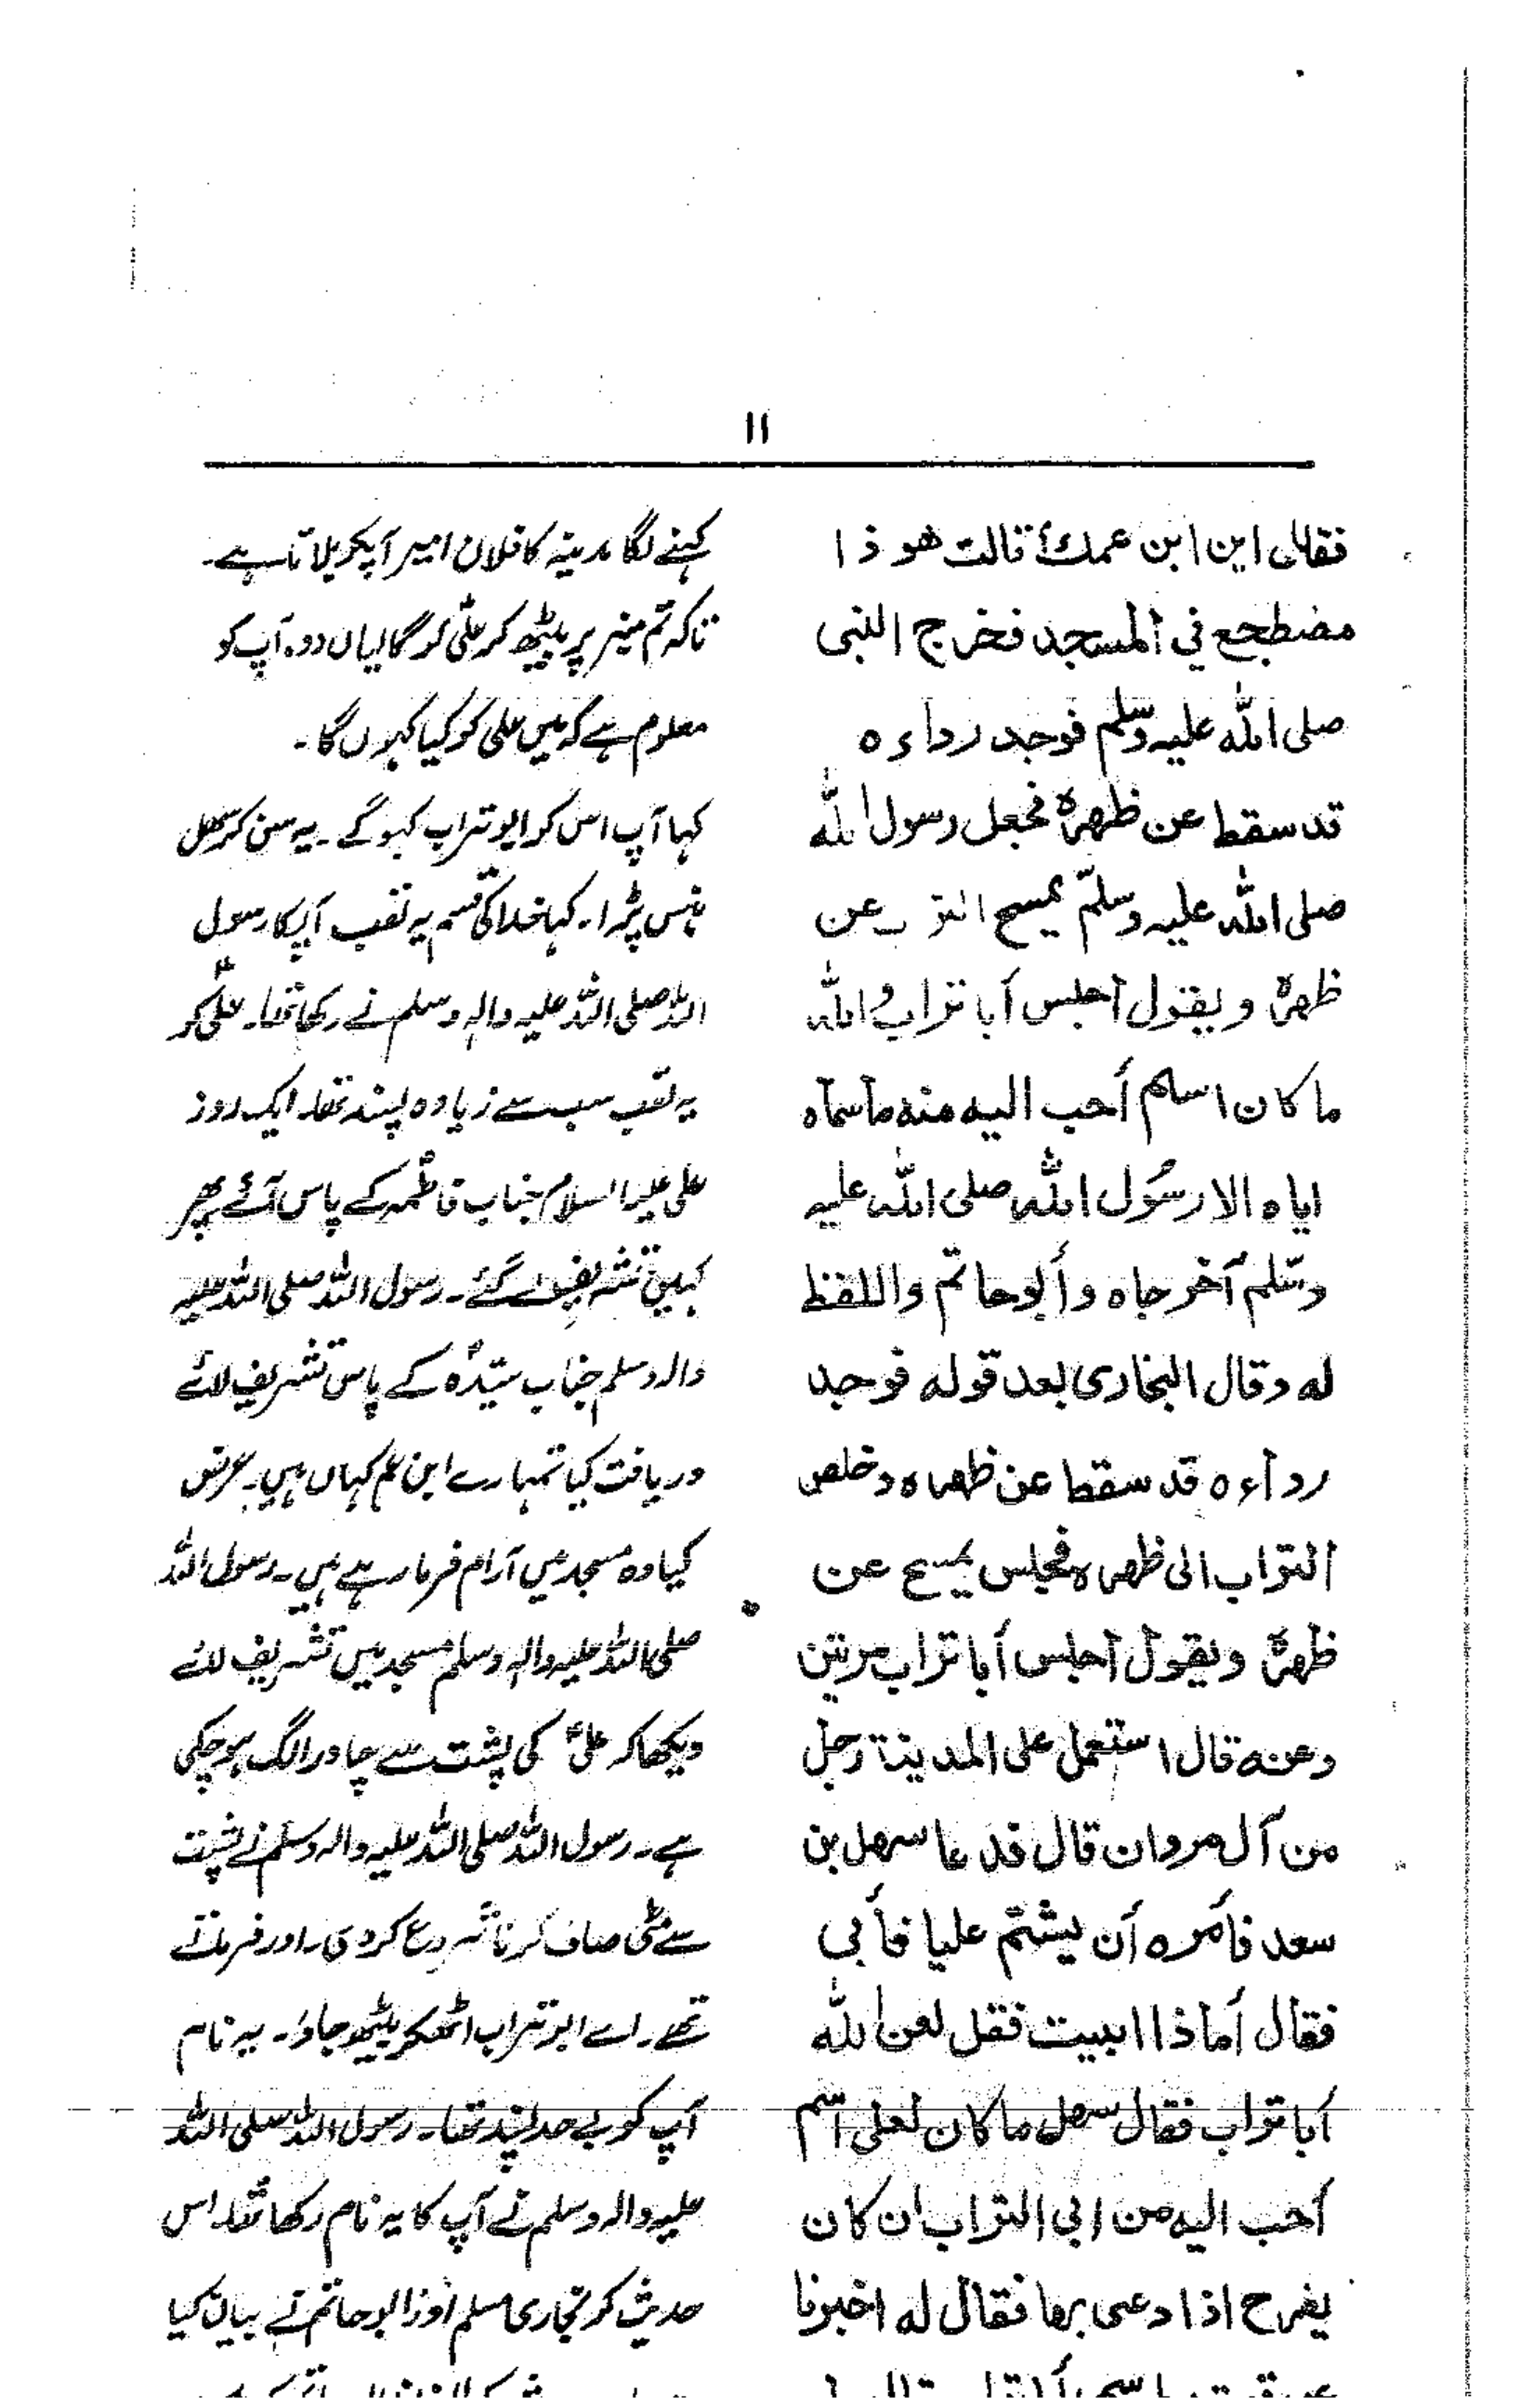 ۱۱
فقال این ابن عمك قالت هو ذا
مضطجع في المسجد فخرج النبی
صلی الله علیه وسلم فوجد رداءه
قد سقط عن ظهره فجعل رسول الله
صلی الله علیه وسلم یمسح التراب عن
ظهره ویقول اجلس أبا تراب والله
ما كان اسم أحب الیه منه ما سماه
ایاه الا رسول الله صلی الله علیه
وسلم أخرجاه وأبو حاتم واللفظ
له وقال البخاری بعد قوله فوجد
رداءه قد سقط عن ظهره وخلص
التراب الی ظهره فجلس یمسح عن
ظهره ویقول اجلس أبا تراب مرتین
وعنه قال استعمل علی المدینة رجل
من آل مروان قال فدعا سهل بن
سعد فأمره أن یشتم علیا فأبی
فقال أما ذا ابیت فقل لعن الله
أبا تراب فقال سهل ما كان لعلی اسم
أحب الیه من ابی التراب ان كان
یفرح اذا دعی بها فقال له اخبرنا
کہنے لگا مدینہ کا فلان امیر آپکو بلاتا ہے۔
تاکہ تم منبر پر بیٹھ کر علیؑ کو گالیاں دو۔ آپ کو
معلوم ہے کہ میں علی کو کیا کہوں گا۔
کہا آپ اس کو ابو تراب کہو گے۔ یہ سن کر سھل
ہنس پڑا۔ کہا خدا کی قسم یہ لقب آپکا رسول
اللہ صلی اللہ علیہ والہ وسلم نے رکھا تھا۔ علیؑ کو
یہ لقب سب سے زیادہ پسند تھا۔ ایک روز
علی علیہ السلام جناب فاطمہؑ کے پاس آئے پھر
کہیں تشریف لے گئے۔ رسول اللہ صلی اللہ علیہ
والہ وسلم جناب سیدہؑ کے پاس تشریف لائے
دریافت کیا تمہارے ابن عم کہاں ہیں۔ عرض
کیا وہ مسجد میں آرام فرما رہے ہیں۔ رسول اللہ
صلی اللہ علیہ والہ وسلم مسجد میں تشریف لائے
دیکھا کہ علیؑ کی پشت سے چادر الگ ہو چکی
ہے۔ رسول اللہ صلی اللہ علیہ والہ وسلم نے پشت
سے مٹی صاف کرنا شروع کر دی۔ اور فرماتے
تھے۔ اے ابو تراب اٹھکر بیٹھ جاؤ۔ یہ نام
آپ کو بے حد پسند تھا۔ رسول اللہ صلی اللہ
علیہ والہ وسلم نے آپ کا یہ نام رکھا تھا۔ اس
حدیث کو بخاری مسلم اور ابو حاتم نے بیان کیا